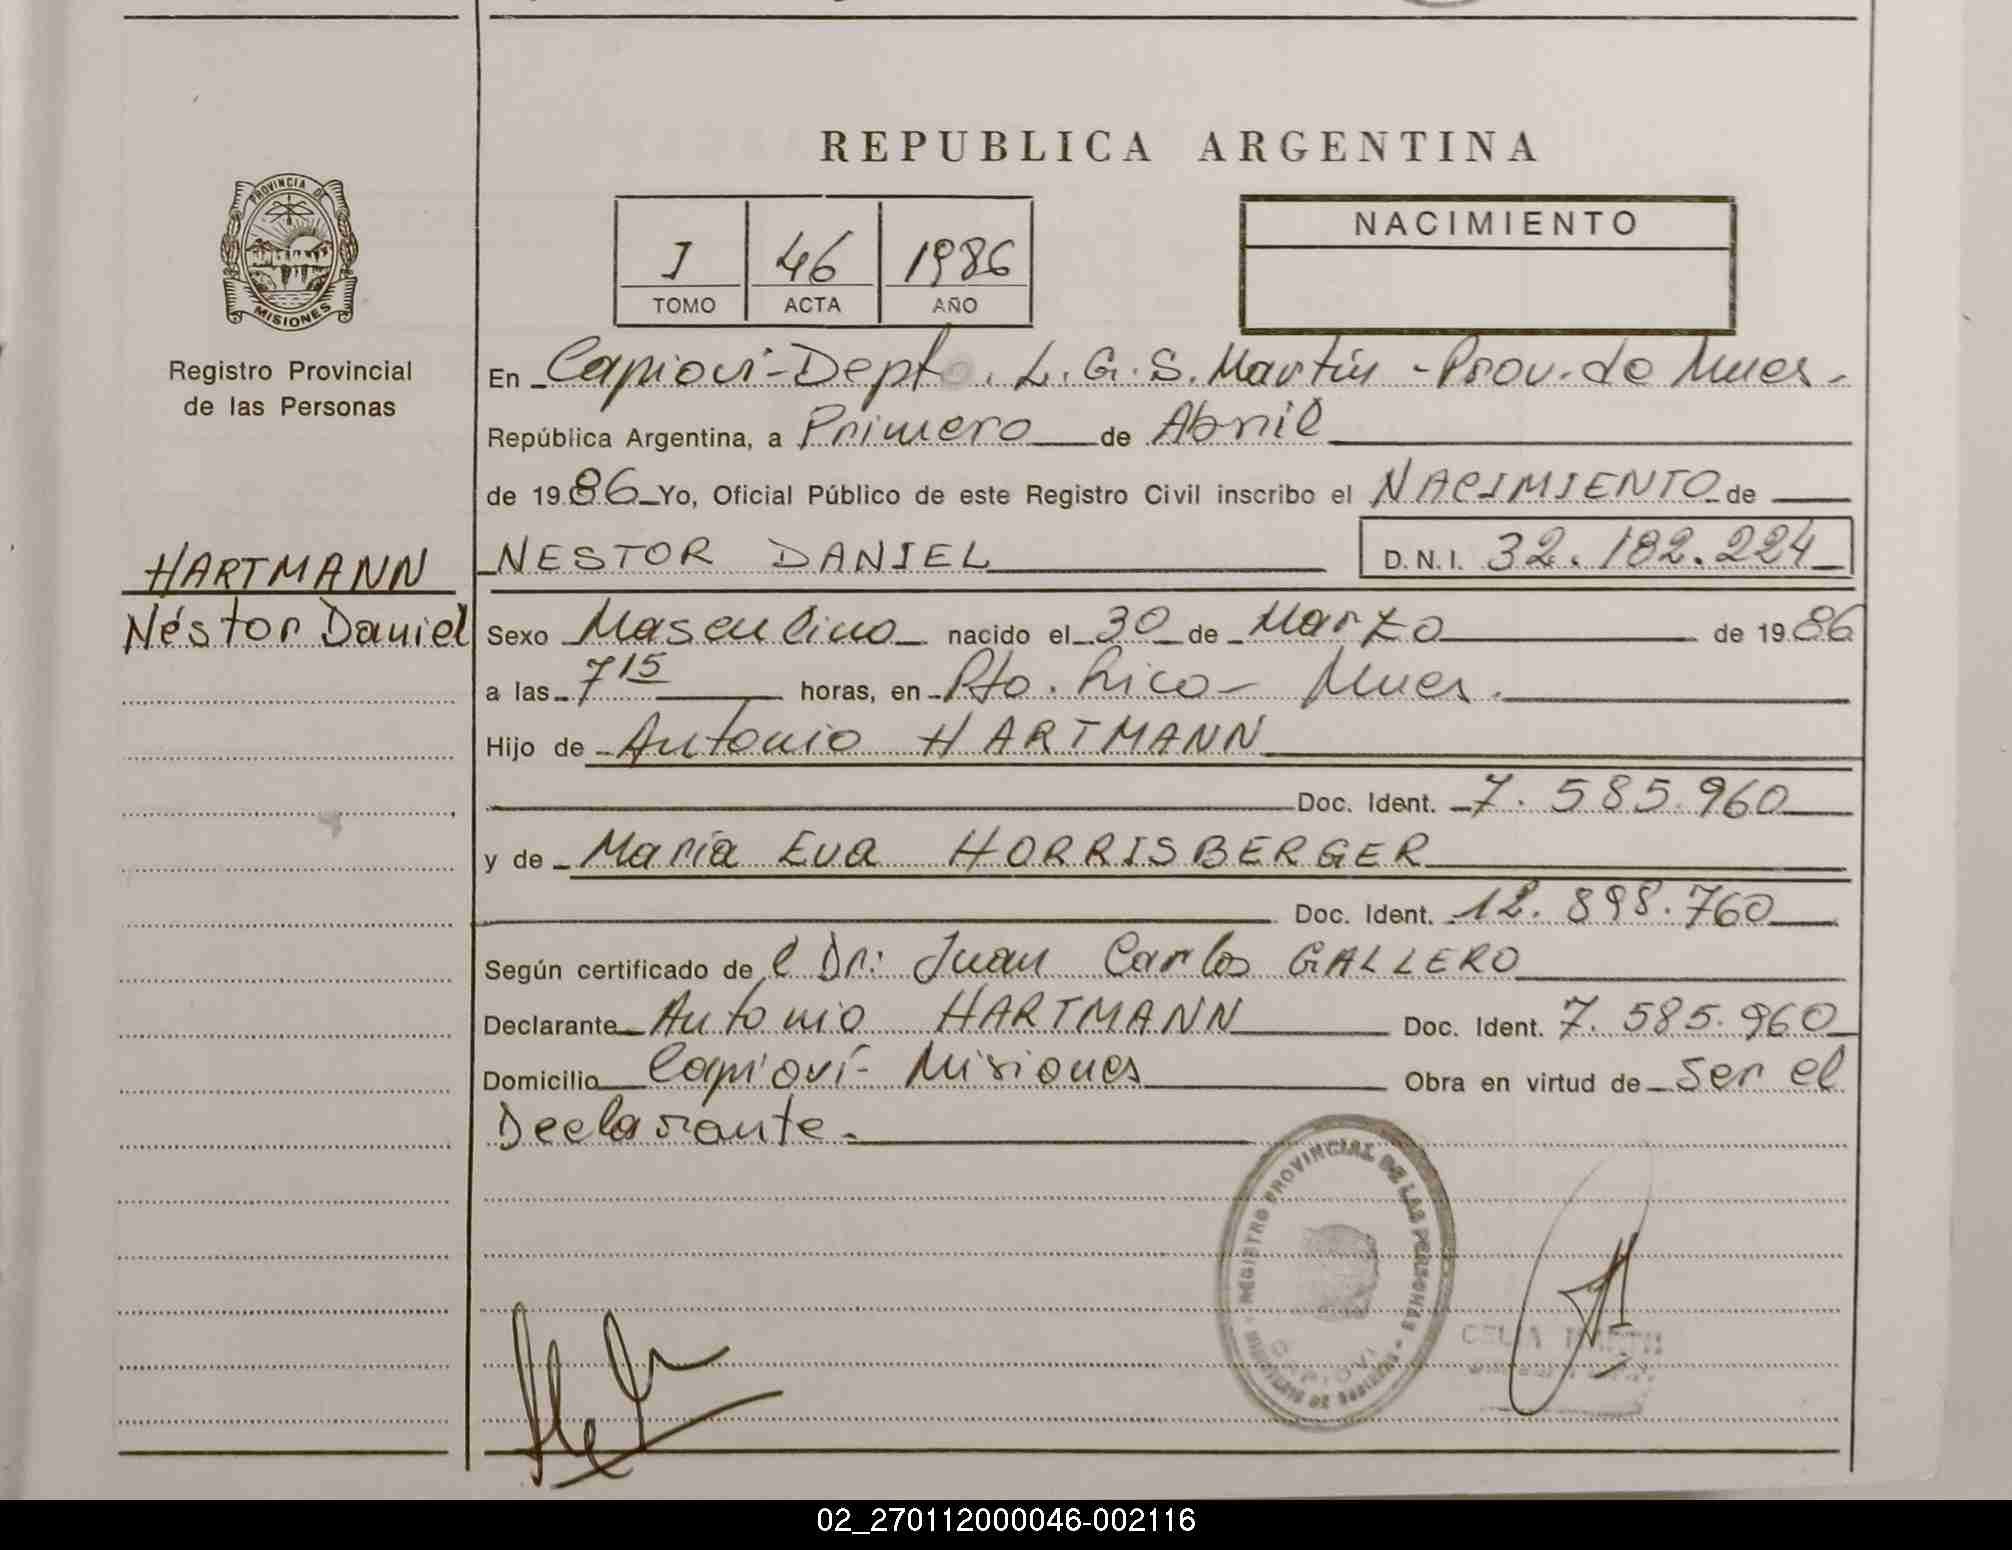 REPUBLICA ARGENTINA
PROVINCIA DE
MISIONES
Registro Provincial
de las Personas
I 46 1986
TOMO ACTA AÑO
NACIMIENTO
En Capioví-Depto. L.G.S. Martín - Prov. de Mnes.
República Argentina, a Primero de Abril
de 1986 Yo, Oficial Público de este Registro Civil inscribo el NACIMIENTO de
HARTMANN
Néstor Daniel
NESTOR DANIEL D.N.I. 32.182.224
Sexo Masculino nacido el 30 de Marzo de 1986
a las 7 15 horas, en Pto. Rico - Mnes.
Hijo de Antonio HARTMANN
Doc. Ident. 7.585.960
y de María Eva HORRISBERGER
Doc. Ident. 12.898.760
Según certificado de el Dr: Juan Carlos GALLERO
Declarante Antonio HARTMANN Doc. Ident. 7.585.960
Domicilio Capioví - Misiones Obra en virtud de ser el
Declarante.
REGISTRO PROVINCIAL DE LAS PERSONAS
CAPIOVI
CELIA
02_270112000046-002116